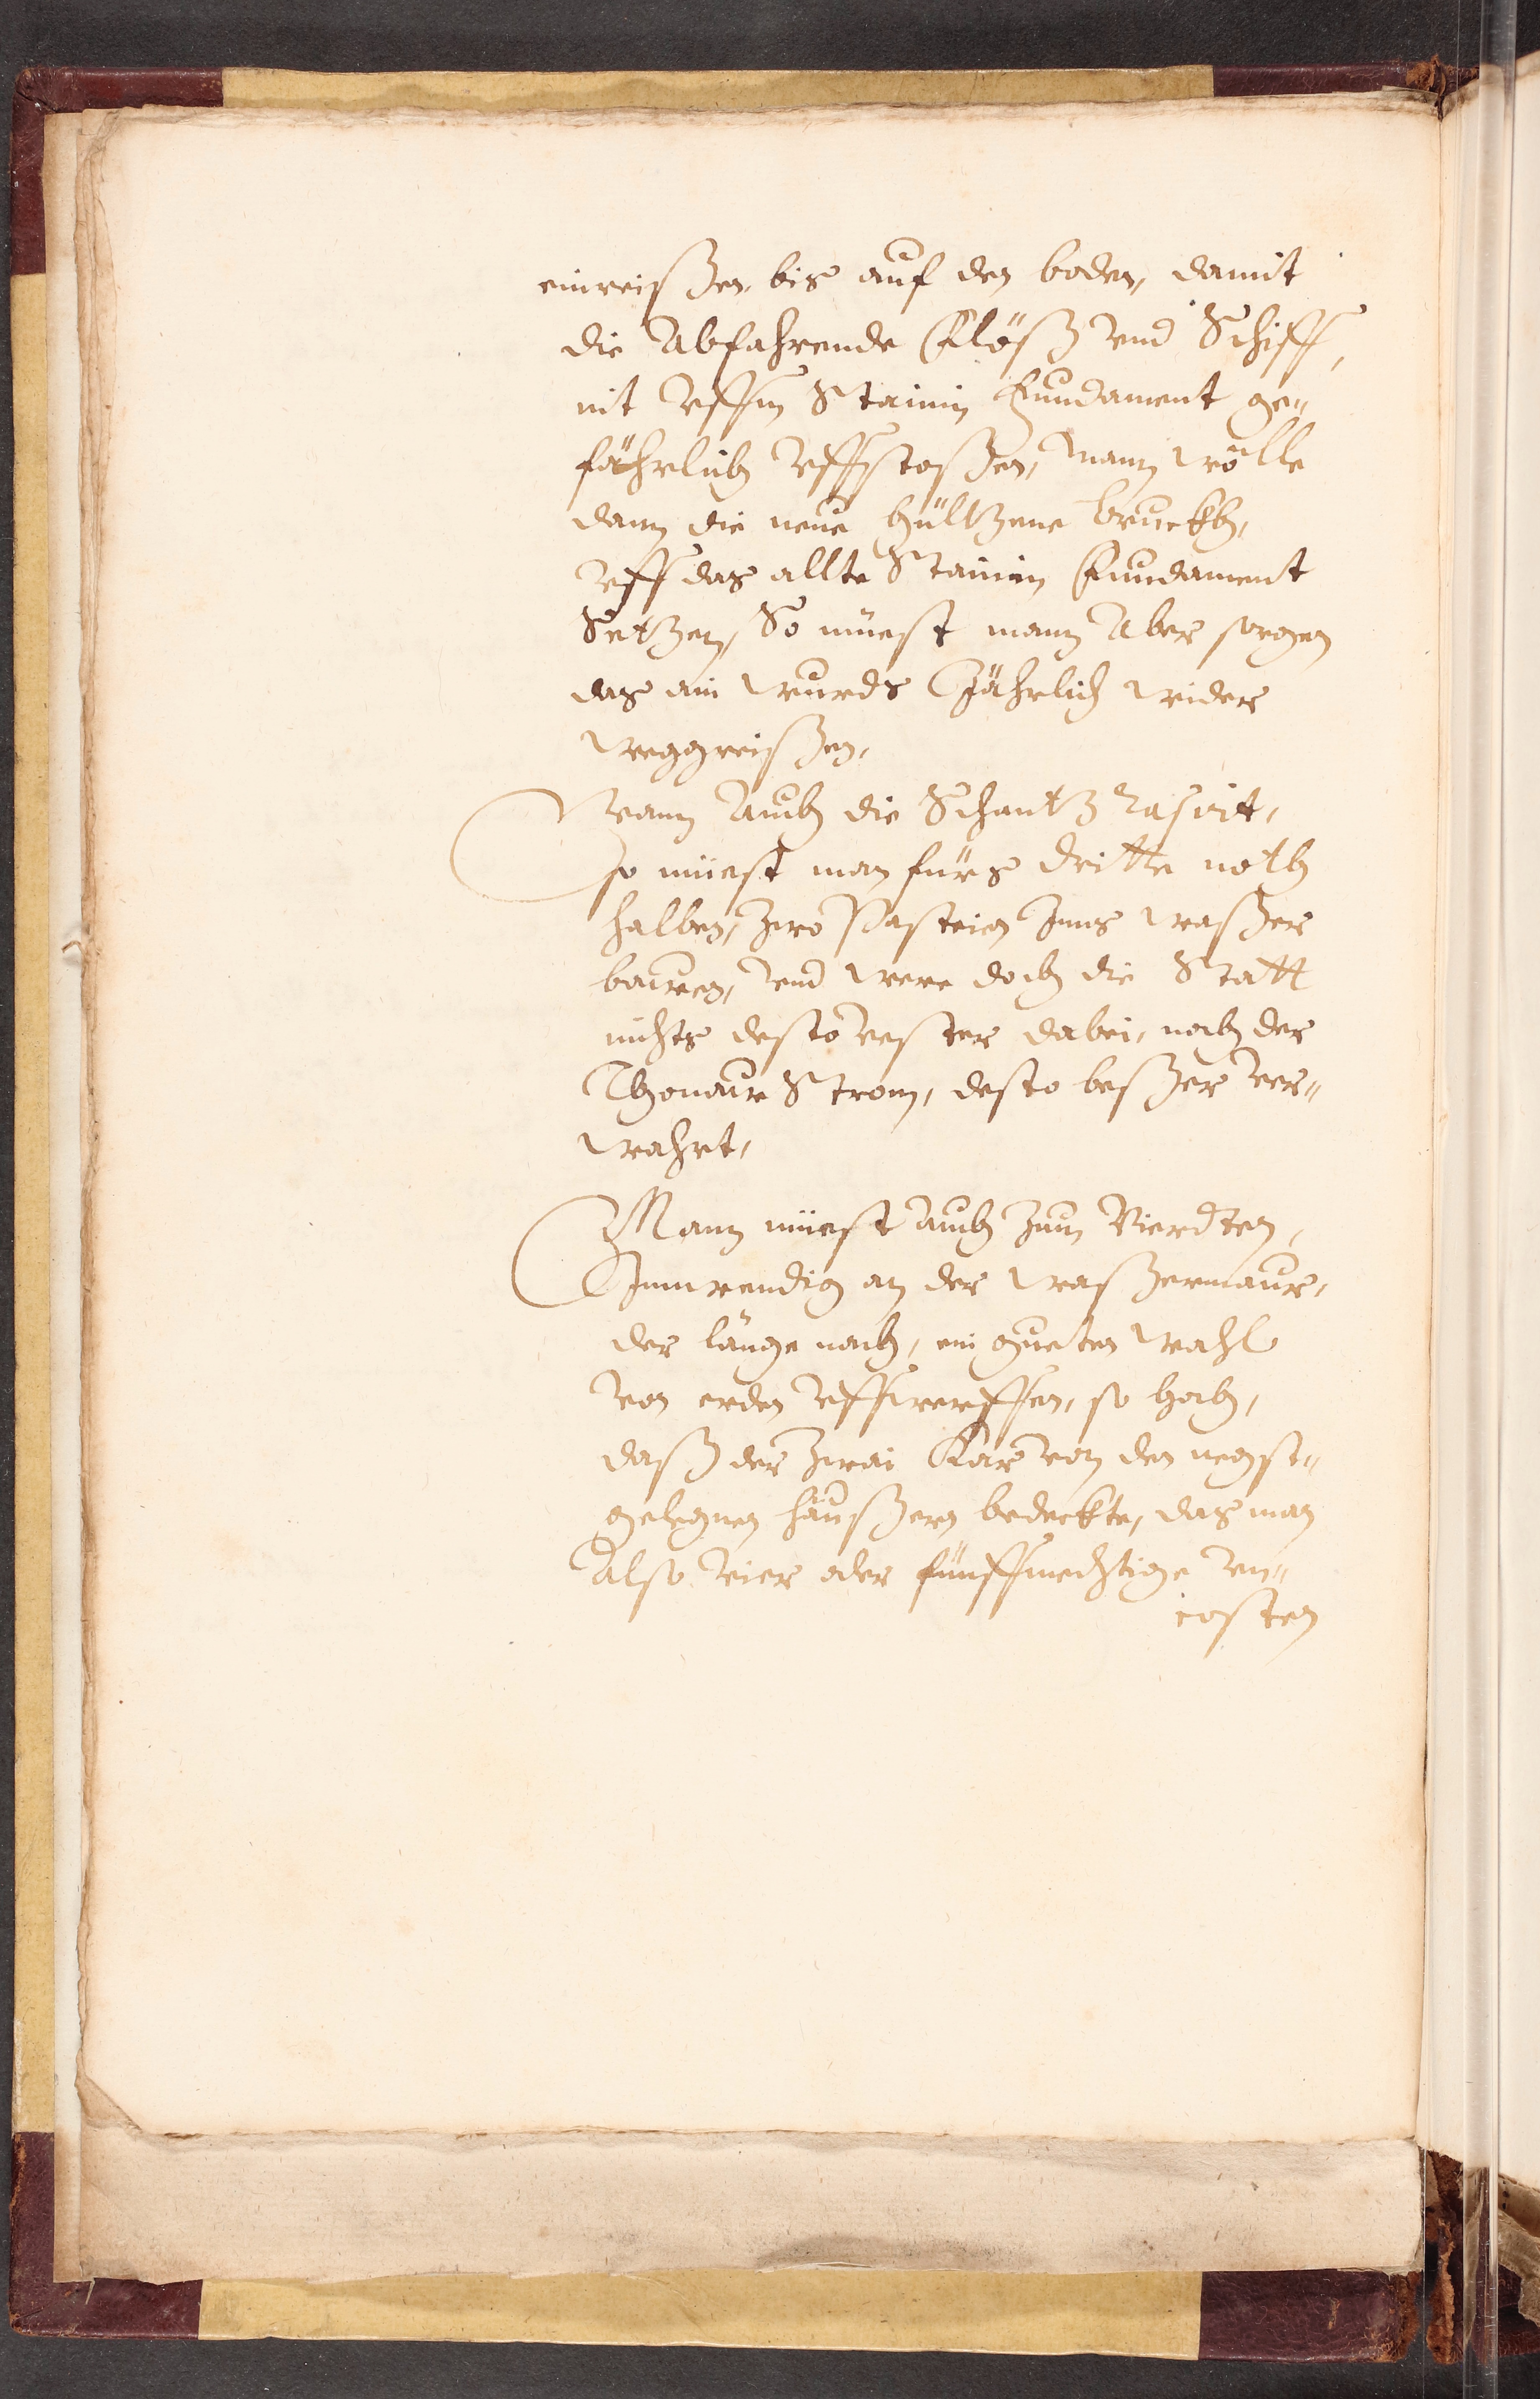 einreißen, bis auf den boden, damit
die Abfahrende Flöß vnd Schiff,
nit vffm Stainin Fundament ge„
fährlich vffstoßen, Mann wölle
dann die neue hültzene bruckh,
vff das allte Stainin Fundament
Setzen, So müest mann Aber sorgen
das ein wurds Jährlich wider
weggreißen,
Wann Auch die Schantz rasirt,
so müest man fürs dritte noth
halben, zwo Pasteien Inns waßer
bawen, vnd were doch die Statt
nichts desto vester dabei, noch der
Thonaw Strom, desto beßer ver„
wahrt,
Mann müest auch zum Vierdten,
Innwendig an der waßermaur,
der länge nach, ein gueten wahl
von erden vffwerffen, so hoch,
daß der zwai von den negst„
gelegnen häußern bedeckte, das man
Also vier oder fünff mechtige vn„
costen